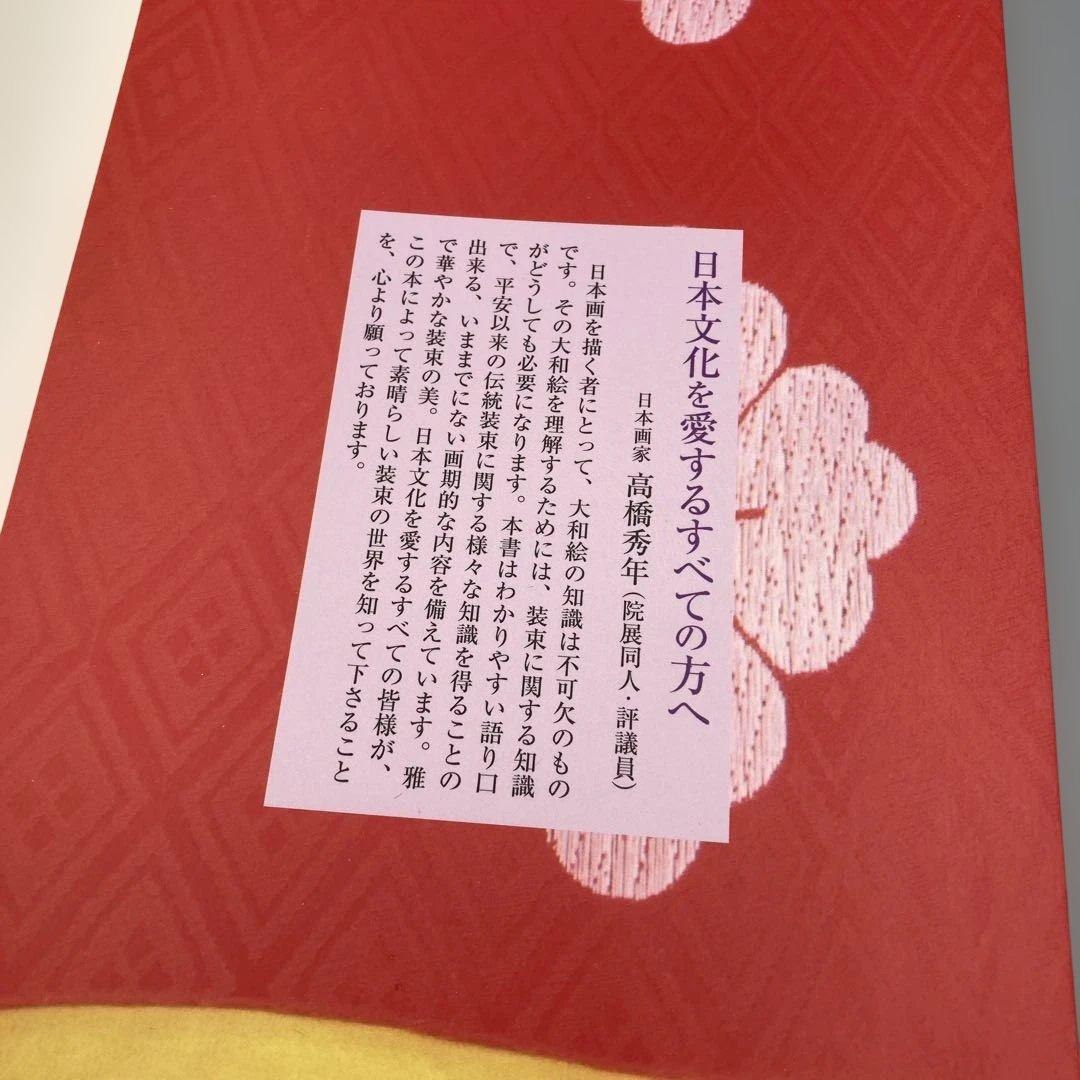 日本文化を愛するすべての方へ
日本画家 高橋秀年(院展同人・評議員)
日本画を描く者にとって、大和絵の知識は不可欠のもの
です。その大和絵を理解するためには、装束に関する知識
がどうしても必要になります。本書はわかりやすい語り口
で、平安以来の伝統装束に関する様々な知識を得ることの
出来る、いままでにない画期的な内容を備えています。雅
で華やかな装束の美。日本文化を愛するすべての皆様が、
この本によって素晴らしい装束の世界を知って下さること
を、心より願っております。